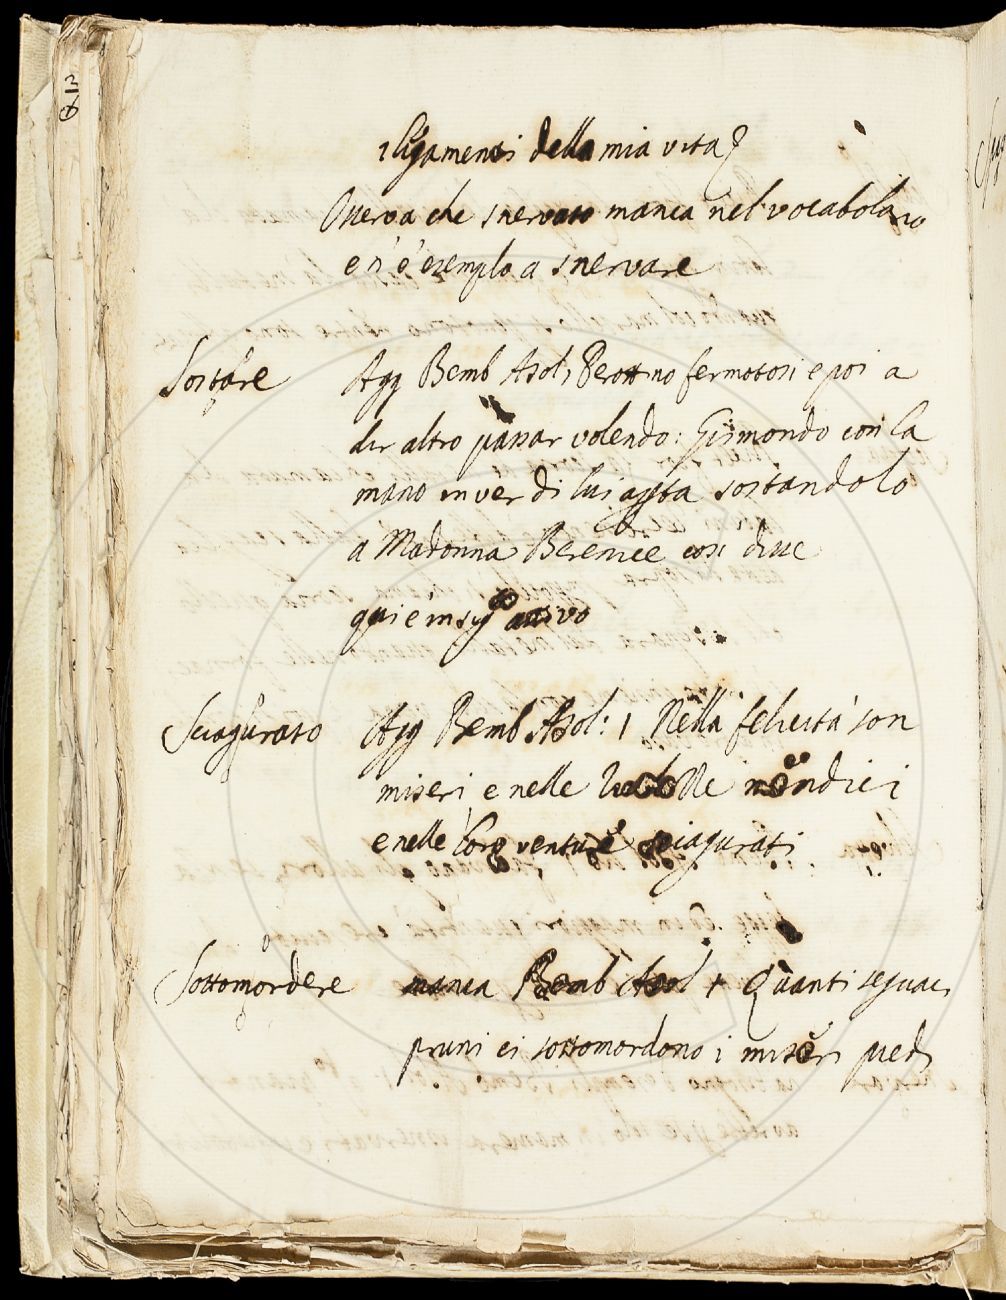 i ligamenti della mia vita
Osserva che snervato manca nel vocabolario
e n'è esempio a snervare
Sostare Agg Bemb Asol, Perottino fermatosi e poi a
dir altro passar volendo: Gismondo con la
mano in ver di lui aperta sostandolo
a Madonna Berenice così disse
qui è in sig attivo
Sciagurato Agg Bemb Asol: 1 Nella felicità son
miseri e nelle mendici
e nelle loro venture sciagurati
Sottomordere manca Bemb Asol + Quanti seguaci
pruni ci sottomordono i miseri piedi